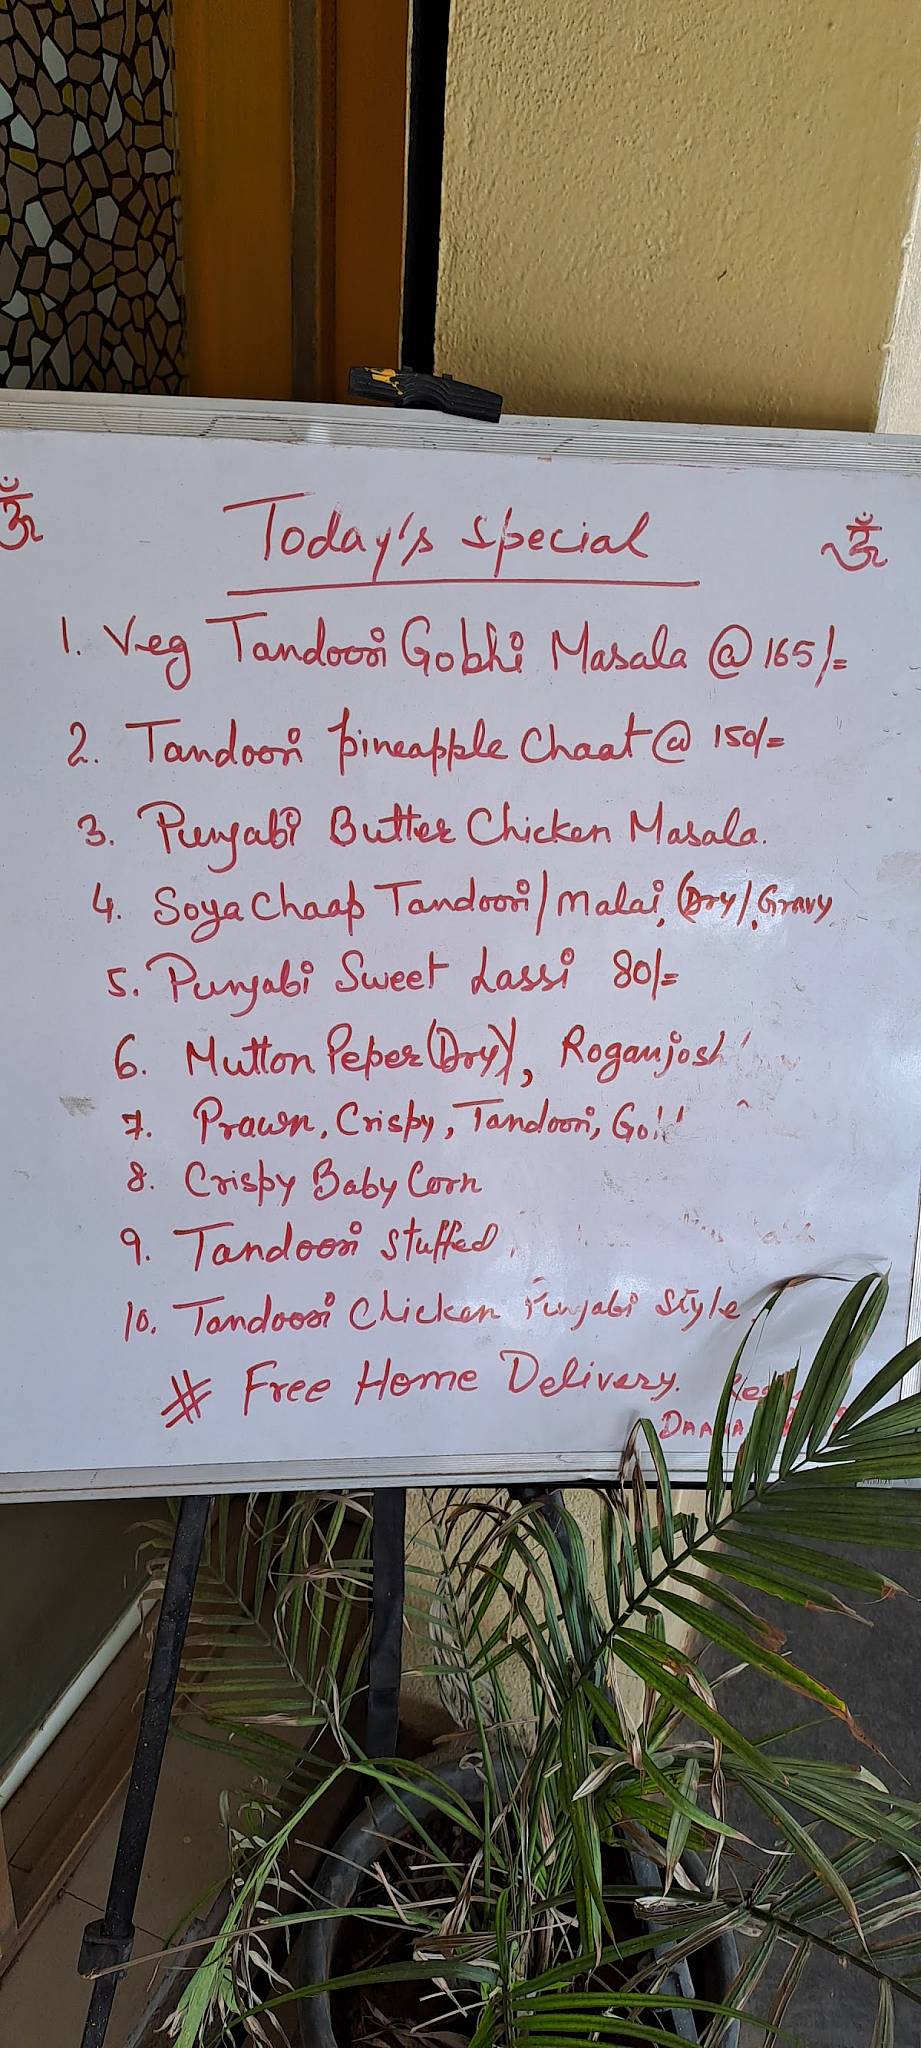 ॐ Today's Special ॐ
1. Veg Tandoori Gobhi Masala @ 165/=
2. Tandoori pineapple Chaat @ 150/=
3. Punjabi Butter Chicken Masala.
4. Soya Chaap Tandoori/Malai, (Dry/Gravy
5. Punjabi Sweet Lassi 80/=
6. Mutton Peper (Dry), Roganjosh
7. Prawn, Crispy, Tandoori,
8. Crispy Baby Corn
9. Tandoori Stuffed
10. Tandoori Chicken Punjabi Style
# Free Home Delivery.